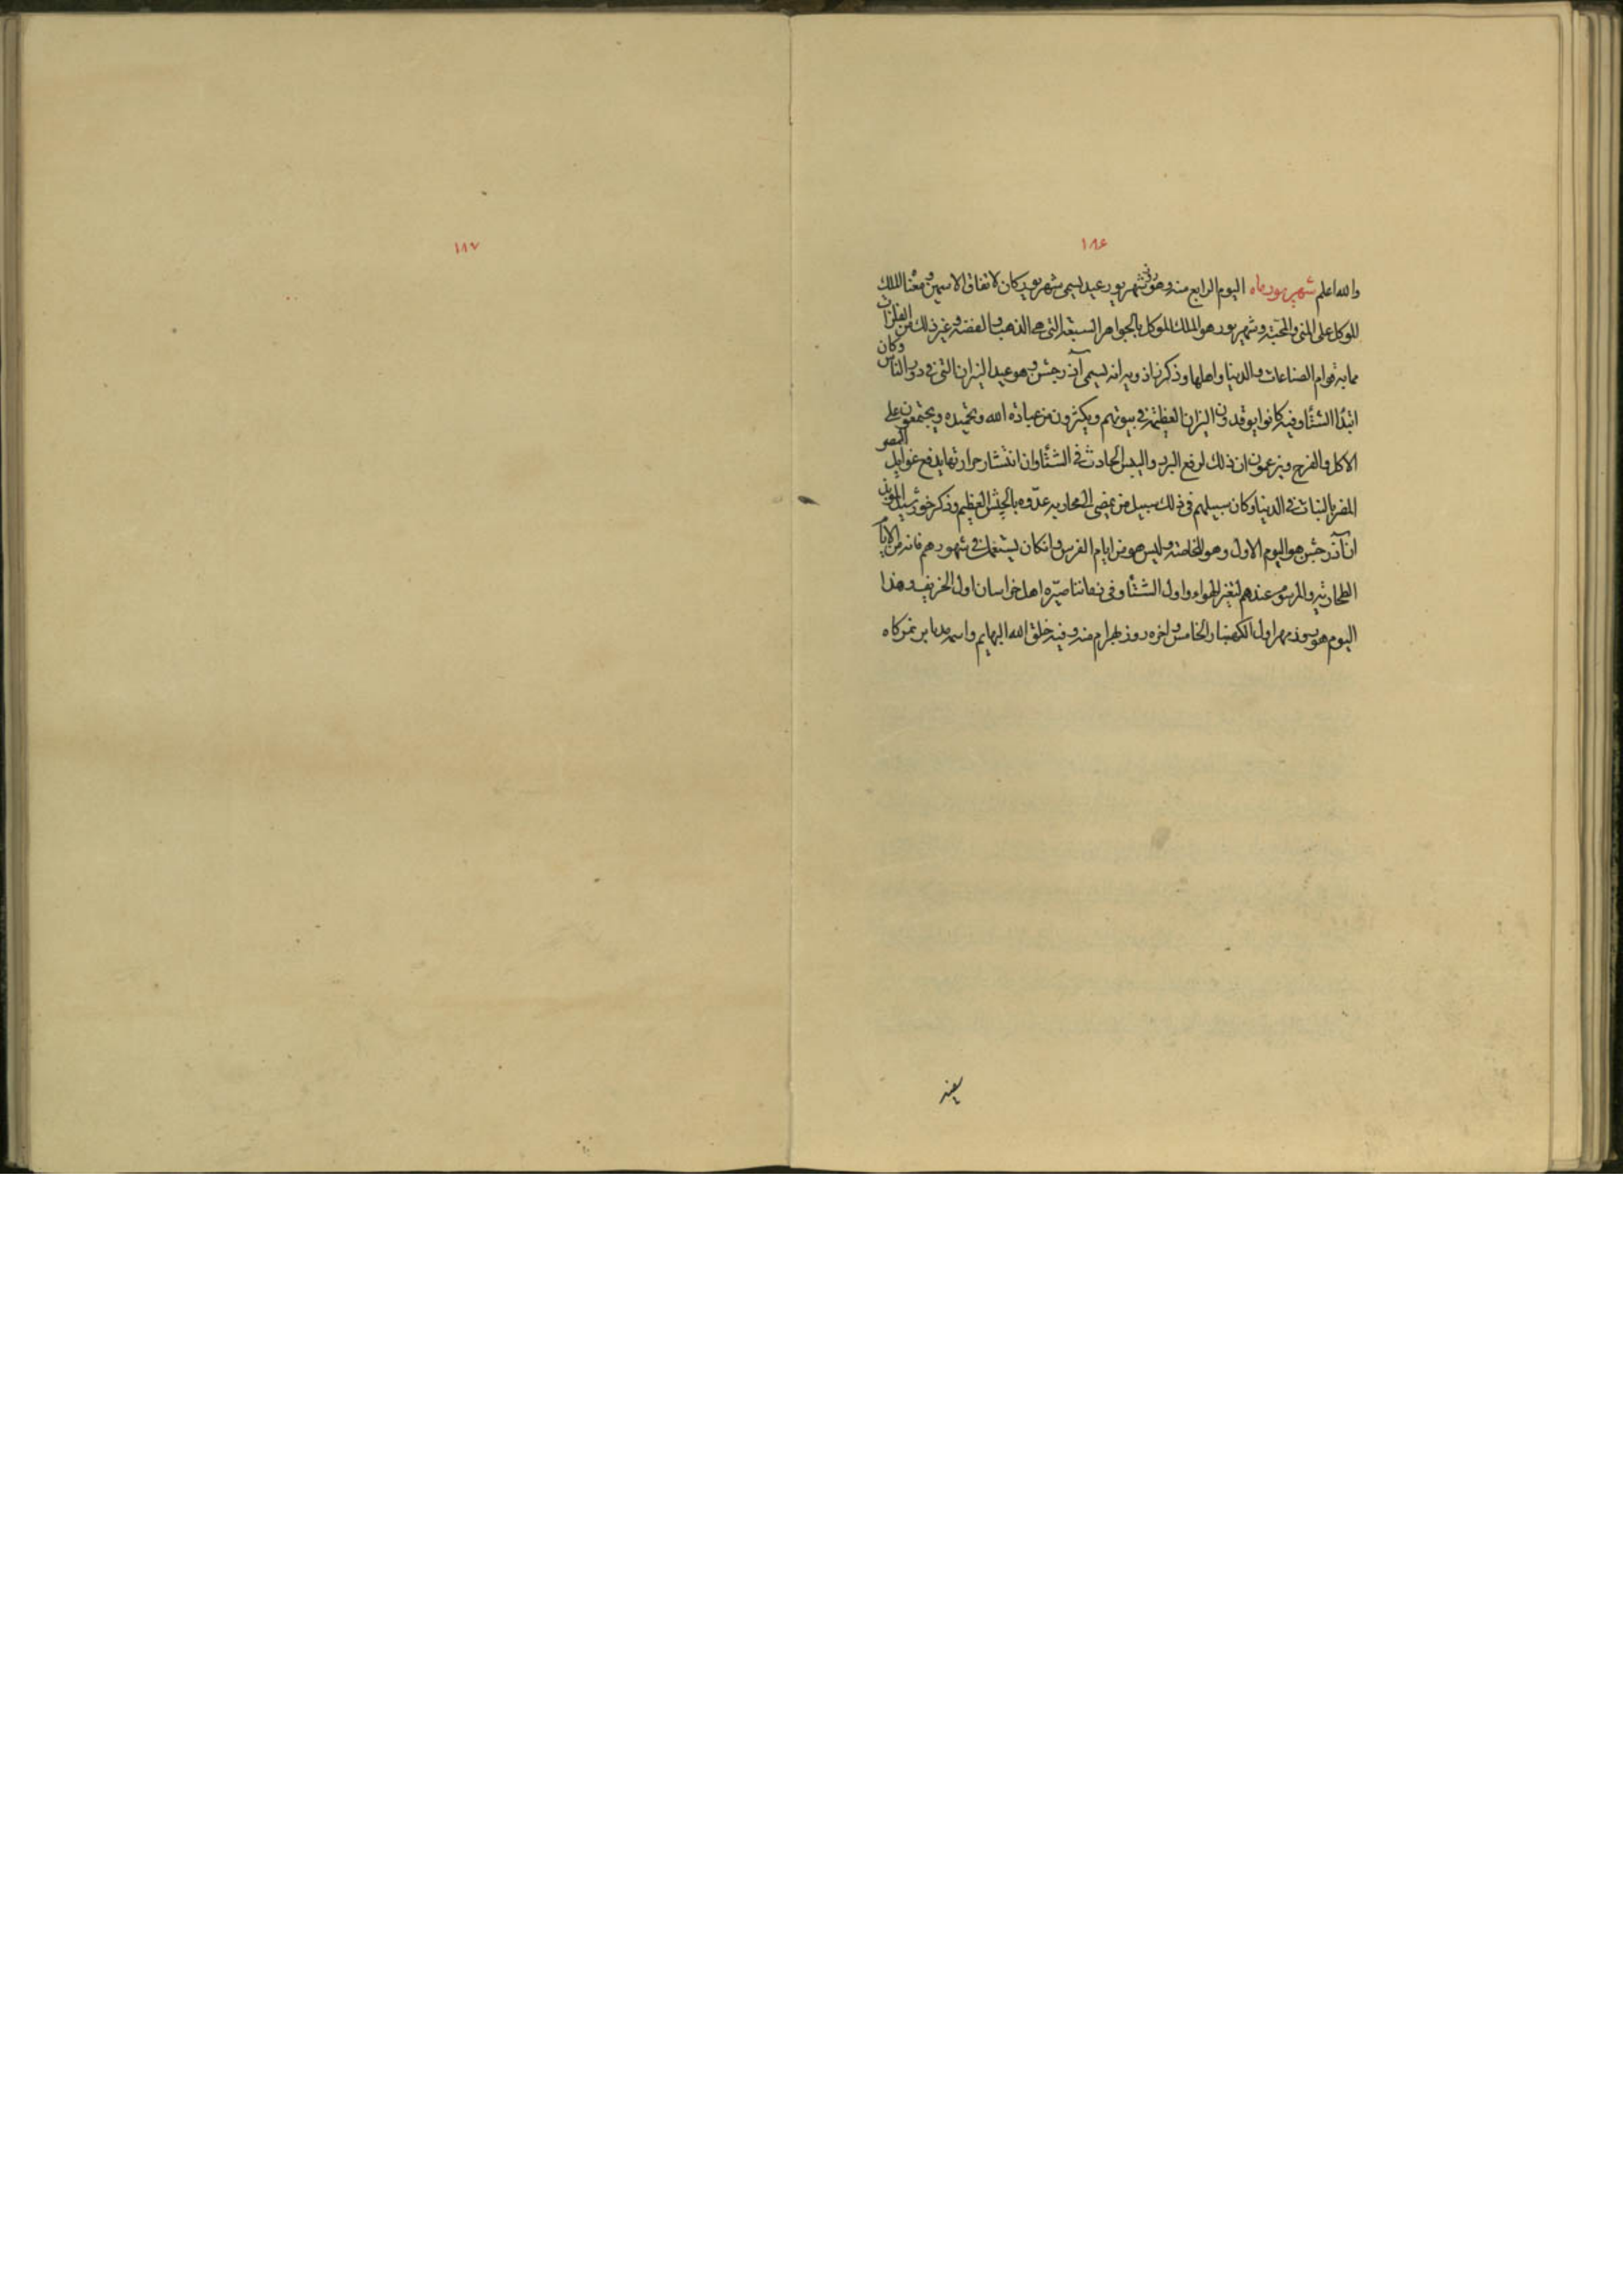 ١٨٤
والله اعلم شهريور ماه اليوم الرابع منه وهو روز شهريور عيد يسمى شهريوركان لاتفاق الاسمين ومعناه الملك
الموكل على المنى والمحبة وشهريور هو الملك الموكل بالجواهر السبعة التى هى الذهب والفضة وغير ذلك من الفلزات
مما به قوام الصناعات والدنيا واهلها وذكر زاذويه انه يسمى آذرجشن وهو عيد النيران التى فى دور الناس وكان
ابتدا الشتأ وفيه كانوا يوقدون النيران العظيمة فى بيوتهم ويكثرون من عبادة الله وتحميده ويجتمعون على
الاكل والفرح ويزعمون ان ذلك لرفع البرد واليبس الحادث فى الشتأ وان انتشار حرارتها يدفع غوايل
المضر بالنبات فى الدنيا وكان سبيلهم فى ذلك سبيل من يمضى الى محاربة عدوه بالجيش العظيم وذكر خورشيد الموبذ
ان آذرجشن هو اليوم الاول وهو للخاصة وليس هو من ايام الفرس وان كان يستعمل فى شهورهم فانه من الايام
الطخارية والمرسوم عندهم لتغير الهواء واول الشتأ وفى زماننا صيره اهل خراسان اول الخريف وهذا
اليوم هو روز مهر اول الكهنبار الخامس واخره روز بهرام منه وفيه خلق الله البهايم واسمه
١٨٧